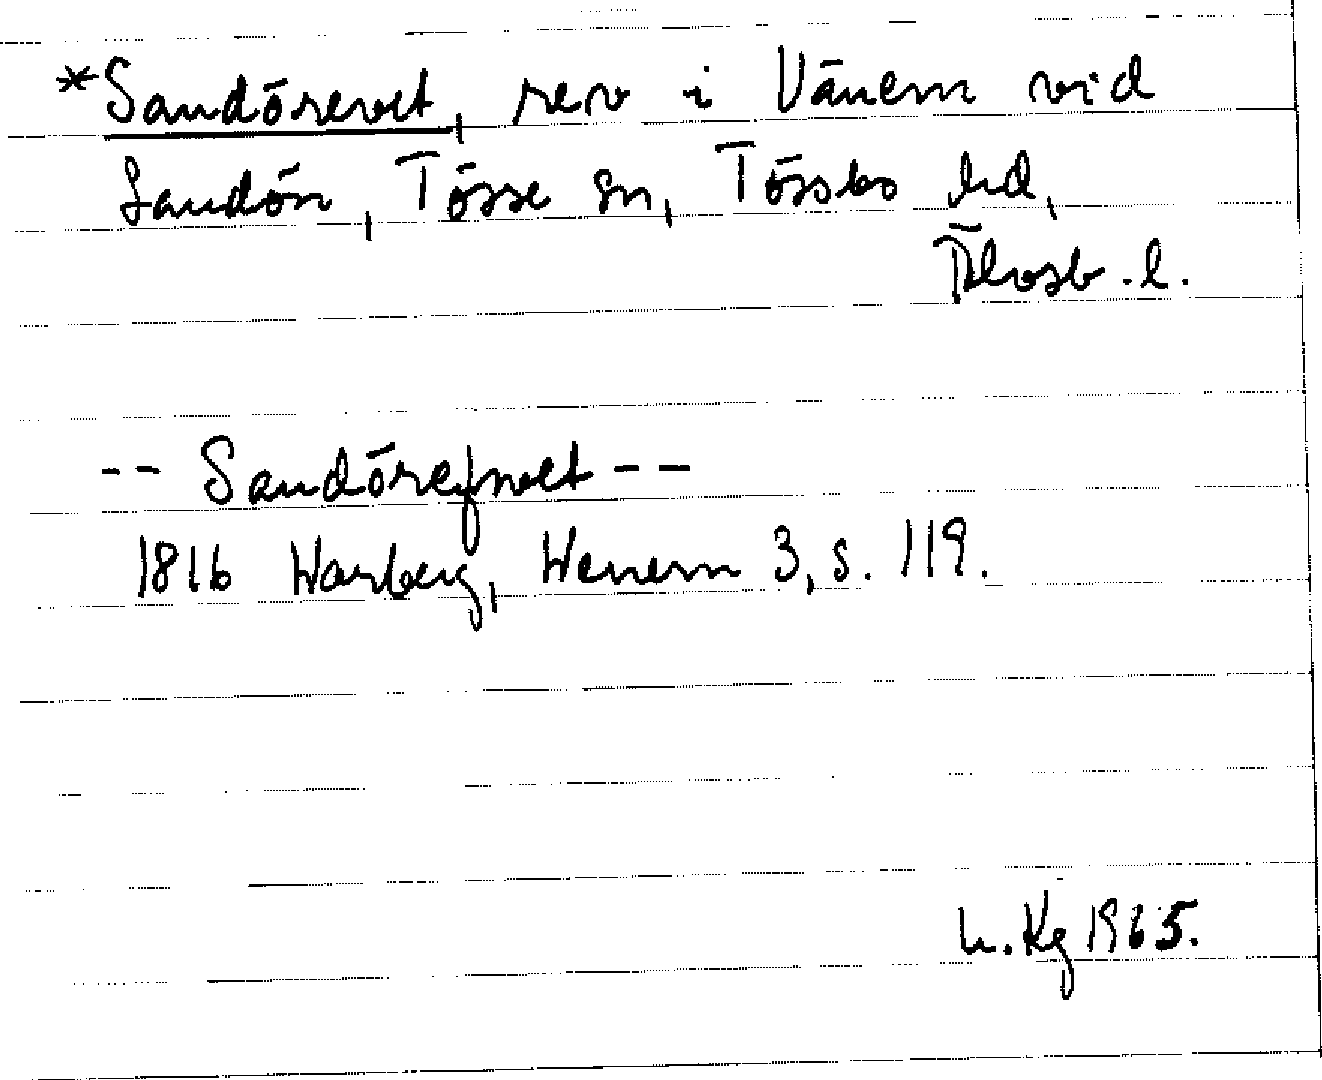 *Sandörevet, rev i Vänern vid
Sandön, Tösse sn, Tössbo hd,
Älvsb. l.
-- Sandörefvet --
1816 Warberg, Wenern 3, s. 119.
h. Kg 1965.